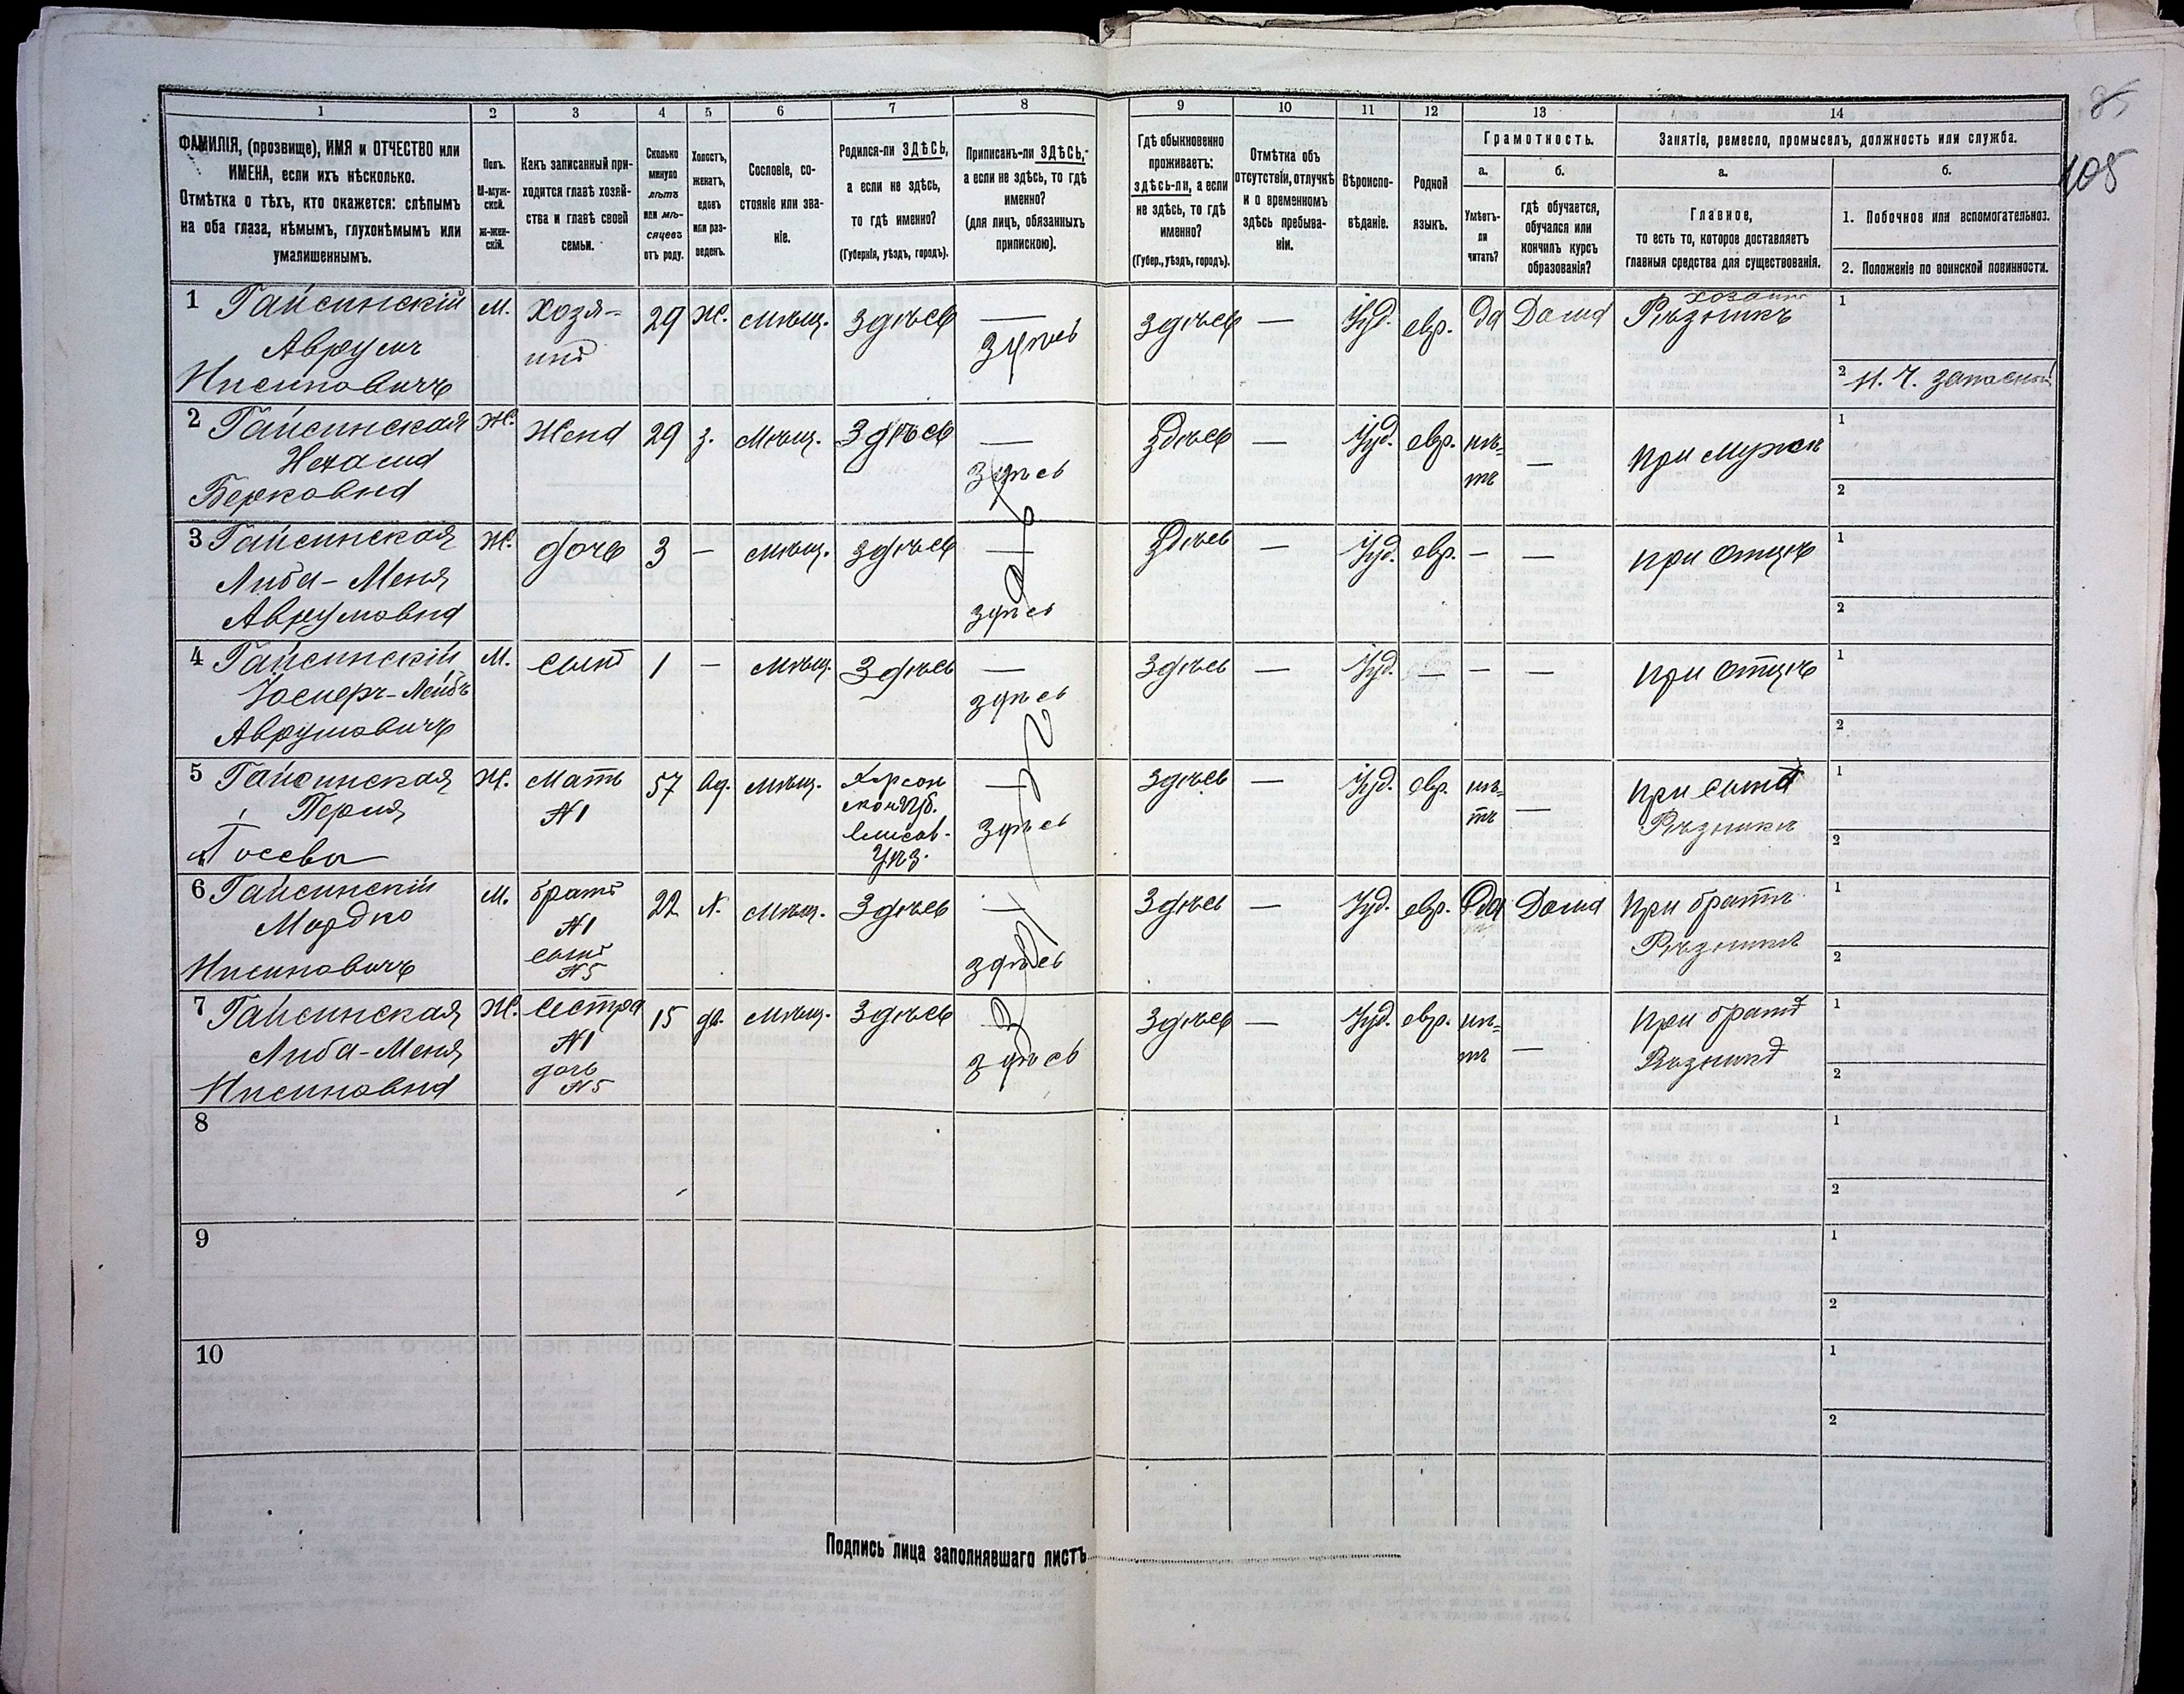 85
105
1 2 3 4 5 6 7 8 9 10 11 12 13 14
ФАМИЛІЯ, (прозвище), ИМЯ и ОТЧЕСТВО или
ИМЕНА, если ихъ нѣсколько.
Отмѣтка о тѣхъ, кто окажется: слѣпымъ
на оба глаза, нѣмымъ, глухонѣмымъ или
умалишеннымъ.
Полъ.
М-муж-
ской.
Ж-жен-
скій.
Какъ записанный при-
ходится главѣ хозяй-
ства и главѣ своей
семьи.
Сколько
минуло
лѣтъ
или мѣ-
сяцевъ
отъ роду.
Холостъ,
женатъ,
вдовъ
или раз-
веденъ.
Сословіе, со-
стояніе или зва-
ніе.
Родился-ли ЗДѢСЬ,
а если не здѣсь,
то гдѣ именно?
(Губернія, уѣздъ, городъ).
Приписанъ-ли ЗДѢСЬ,
а если не здѣсь, то гдѣ
именно?
(для лицъ, обязанныхъ
припискою).
Гдѣ обыкновенно
проживаетъ:
здѣсь-ли, а если
не здѣсь, то гдѣ
именно?
(Губер., уѣздъ, городъ).
Отмѣтка объ
отсутствіи, отлучкѣ
и о временномъ
здѣсь пребыва-
ніи.
Вѣроиспо-
вѣданіе.
Родной
языкъ.
Грамотность.
а.
Умѣетъ-
ли
читать?
б.
гдѣ обучается,
обучался или
кончилъ курсъ
образованія?
Занятіе, ремесло, промыселъ, должность или служба.
а.
Главное,
то есть то, которое доставляетъ
главныя средства для существованія.
б.
1. Побочное или вспомогательное.
2. Положеніе по воинской повинности.
1 Гайсинскій
Аврумъ
Нисиновичъ
М.
Хозя-
инъ
29 Ж. Мѣщ. Здѣсь —
Здѣсь
Здѣсь — Іуд. евр. да Дома
хозяинъ
Рѣзникъ
1
2 Н. Ч. запасной
2 Гайсинская
Нехама
Берковна
Ж. Жена 29 з. Мѣщ. Здѣсь —
Здѣсь
Здѣсь — Іуд. евр. нѣ-
тъ —
при мужѣ
1
2
3 Гайсинская
Либа-Меня
Аврумовна
Ж. дочь 3 — Мѣщ. Здѣсь —
здѣсь
Здѣсь — Іуд. евр. — —
при отцѣ
1
2
4 Гайсинскій
Аврумовичъ
М. сынъ 1 — Мѣщ. Здѣсь —
здѣсь
Здѣсь — Іуд. — — —
при отцѣ
1
2
5 Гайсинская
Перля
Ж. Мать
№1
57 вд. Мѣщ.
Херсон
ской губ.
Елисав-
Уѣз.
—
Здѣсь
Здѣсь — Іуд. евр. нѣ-
тъ —
при сынѣ
Рѣзникѣ
1
2
6 Гайсинскій
Мордко
Нисиновичъ
М. братъ
№1
сынъ
№5
22 х. Мѣщ. Здѣсь —
здѣсь
Здѣсь — Іуд. евр. да Дома
При братѣ
Рѣзникѣ
1
2
7 Гайсинская
Либа-Меня
Нисиновна
Ж. Сестра
№1
дочь
№5
15 дѣ. Мѣщ. Здѣсь —
здѣсь
Здѣсь — Іуд. евр. нѣ-
тъ —
при братѣ
Рѣзникѣ
1
2
8
1
2
9
1
2
10
1
2
Подпись лица заполнявшаго листъ